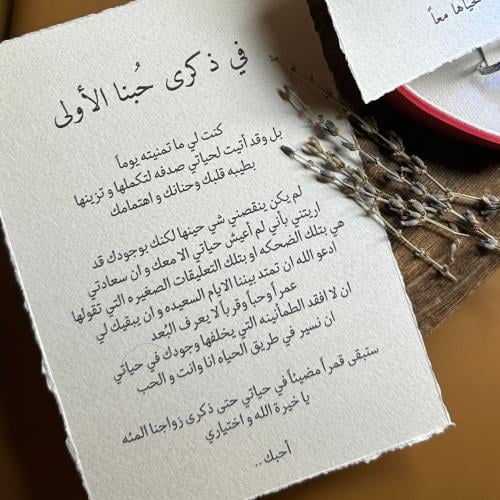 حياها معاً
في ذكرى حُبنا الأولى
كنت لي ما تمنيته يوماً
بل وقد أتيت لحياتي صدفه لتكملها و تزينها
بطيبه قلبك وحنانك و اهتمامك
لم يكن ينقصني شي حينها لكنك بوجودك قد
اريتني بأني لم أعيش حياتي الا معك و ان سعادتي
هي بتلك الضحكه او بتلك التعليقات الصغيره التي تقولها
ادعو الله ان تمتد بيننا الايام السعيده و ان يبقيك لي
عمراً وحباً وقرباً لا يعرف البُعد
ان لا افقد الطمأنينه التي يخلفها وجودك في حياتي
ان نسير في طريق الحياه انا وانت و الحب
ستبقى قمراً مضيئاً في حياتي حتى ذكرى زواجنا المئه
يا خيرة الله و اختياري
أحبك ..